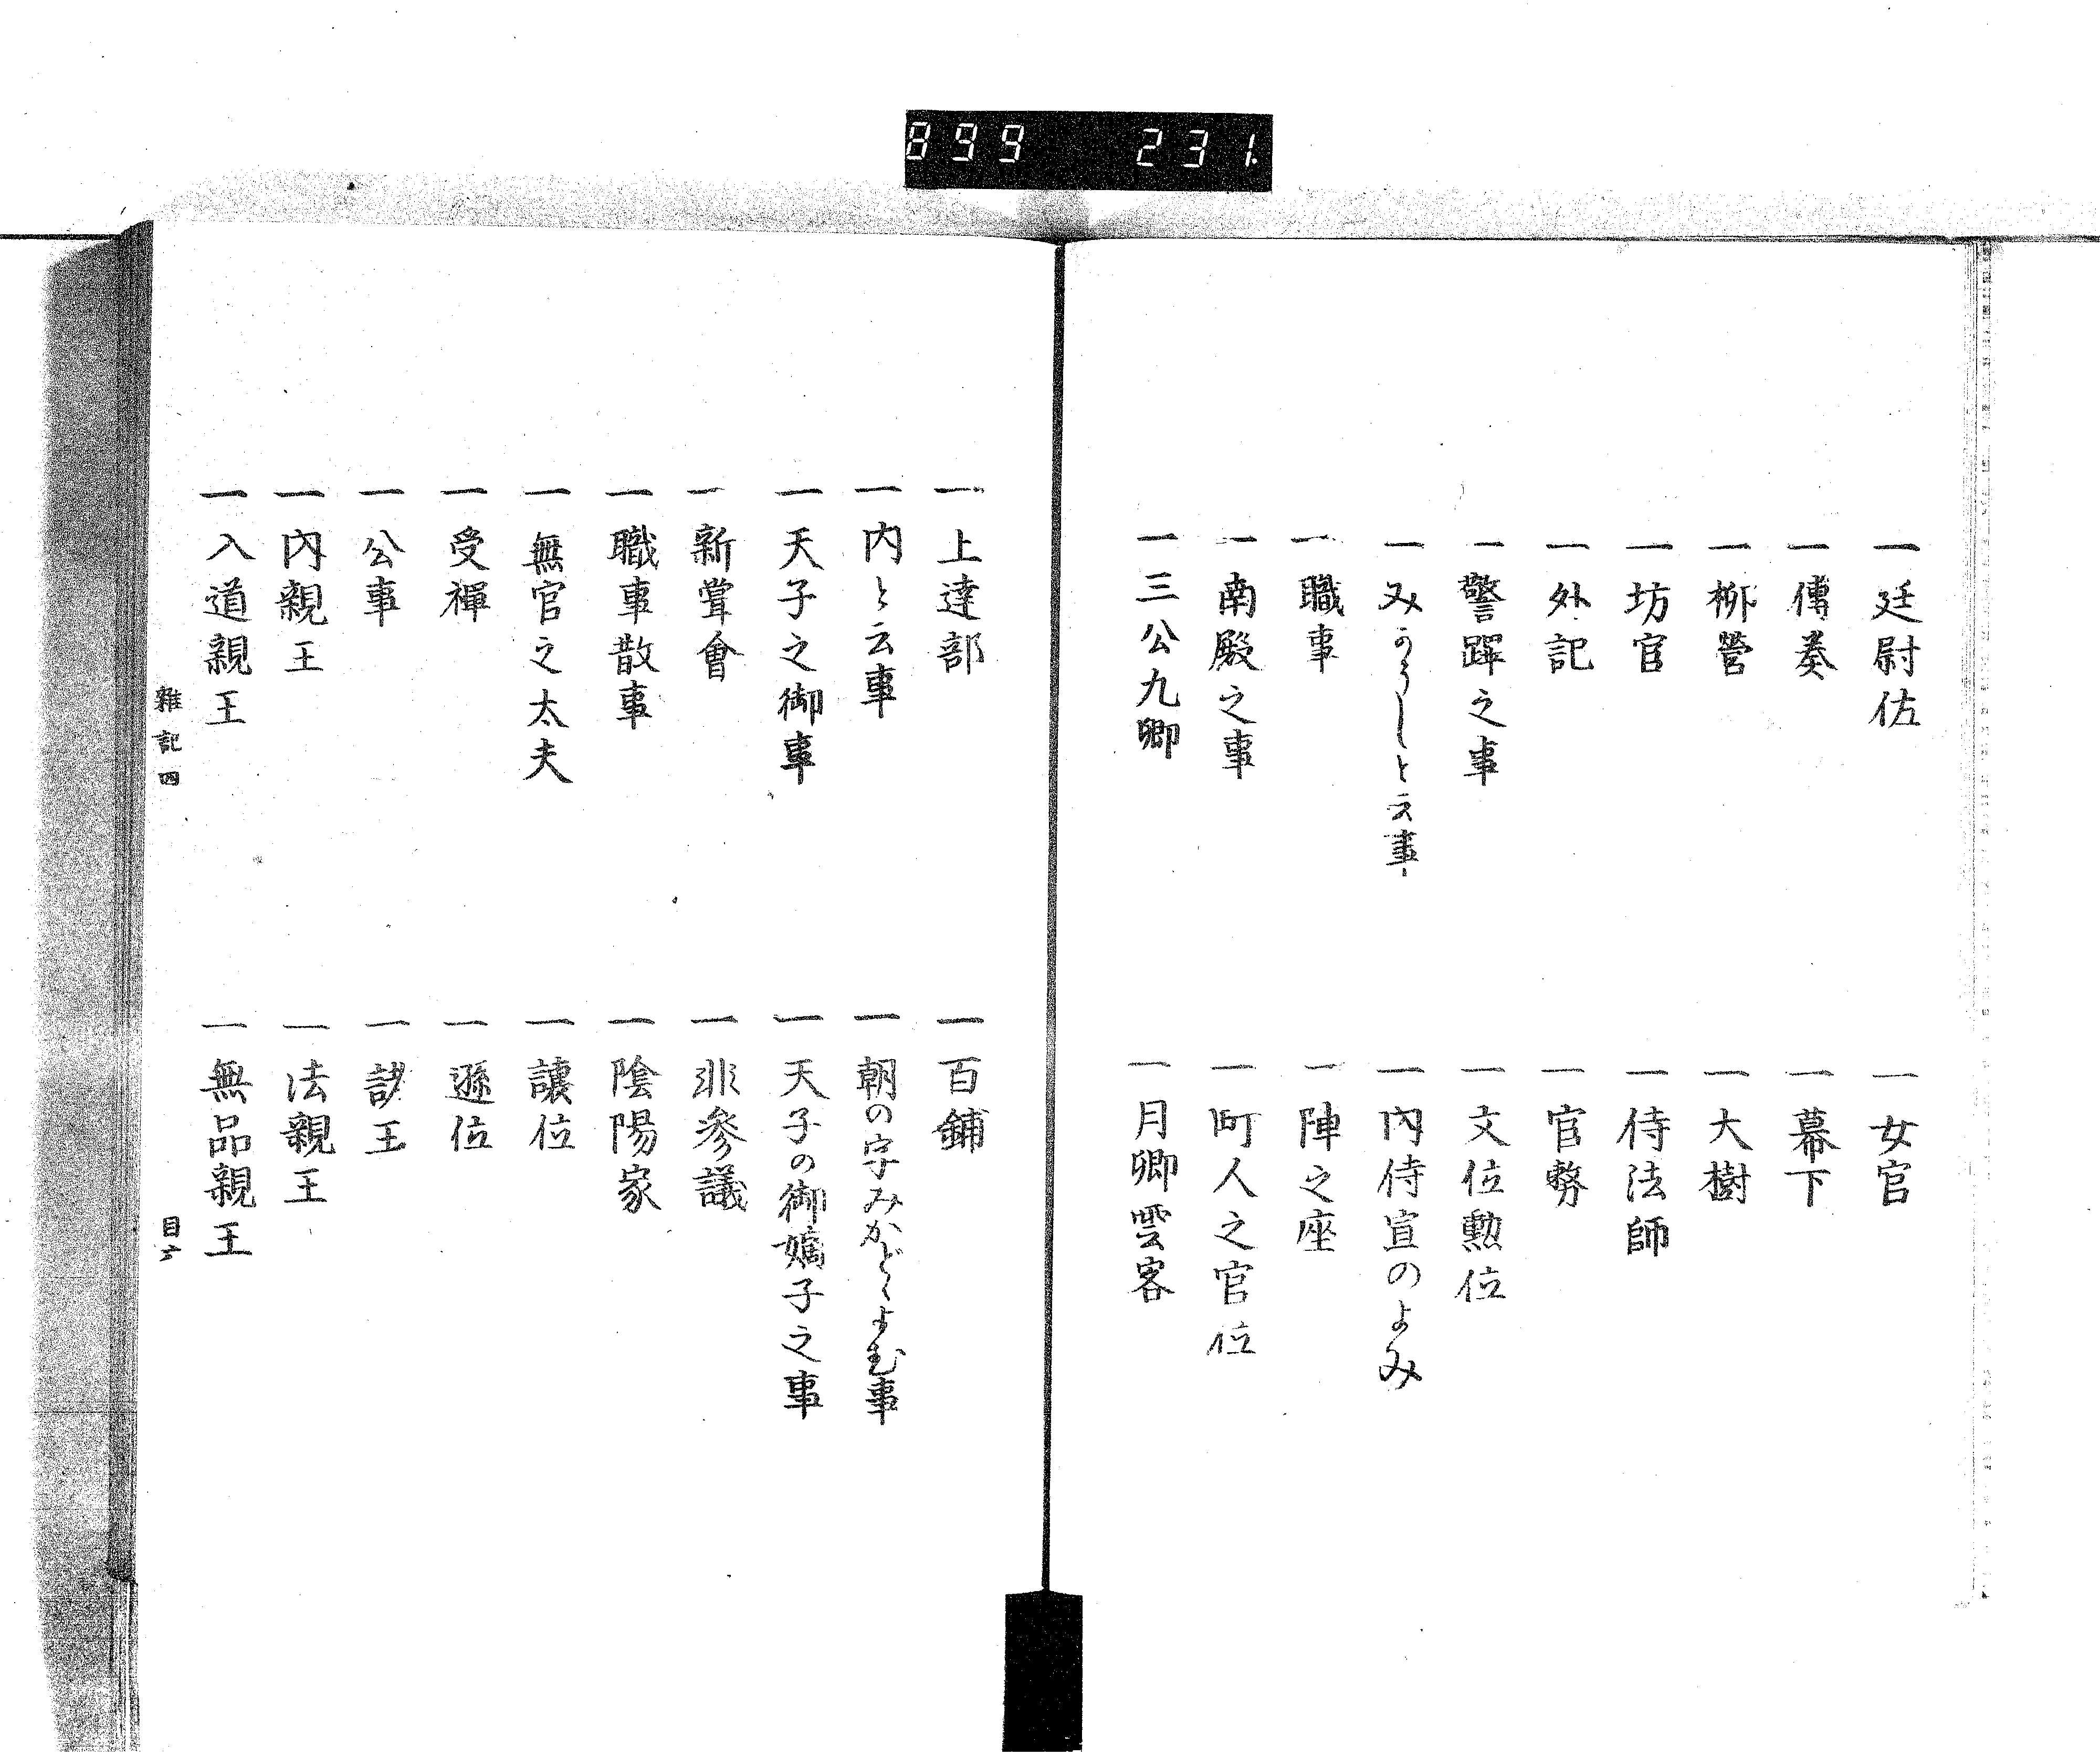 899 231
一 廷尉佐 一 女官
一 傳奏 一 幕下
一 柳營 一 大樹
一 坊官 一 侍法師
一 外記 一 官務
一 警蹕之事 一 文位勲位
一 みかうしと云事 一 內侍宣のよみ
一 職事 一 陣之座
一 南殿之事 一 町人之官位
一 三公九卿 一 月卿雲客
一 上達部 一 百鋪
一 内と云事 一 朝の字みかどゝよむ事
一 天子之御事 一 天子の御嫡子之事
一 新嘗會 一 非參議
一 職事散事 一 陰陽家
一 無官之太夫 一 讓位
一 受禪 一 遜位
一 公事 一 諸王
一 內親王 一 法親王
一 入道親王 一 無品親王
雜記四 目二